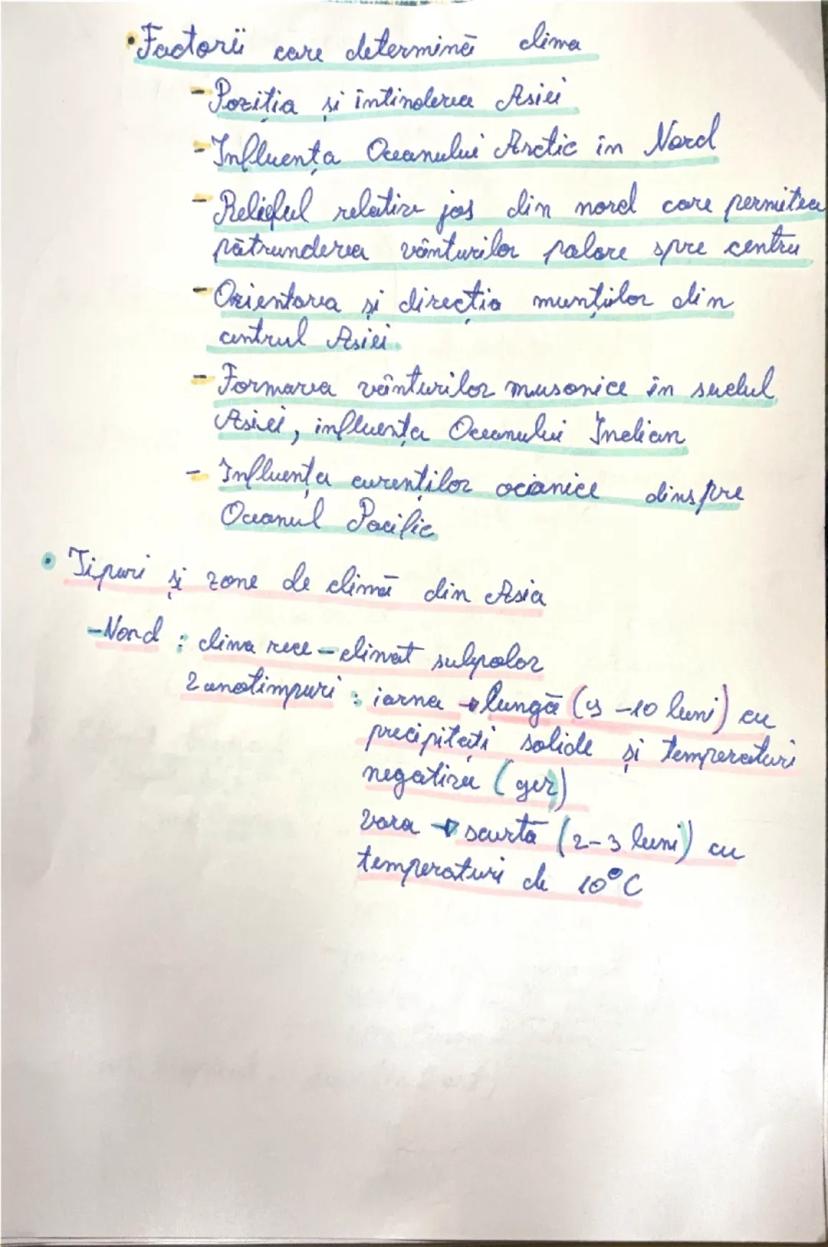 • Factorii care determină clima
- Poziția și întinderea Asiei
- Influența Oceanului Arctic în Nord
- Relieful relativ jos din nord care permitea
pătrunderea vânturilor polare spre centru
- Orientarea și direcția munților din
centrul Asiei
- Formarea vânturilor musonice în sudul
Asiei, influența Oceanului Indian
- Influența curenților ocianice dinspre
Oceanul Pacific
• Tipuri și zone de climă din Asia
- Nord : clima rece - climat subpolar
2 anotimpuri : iarna → lungă (9 - 10 luni) cu
precipitați solide și temperaturi
negative (ger)
vara → scurtă (2 - 3 luni) cu
temperaturi de 10°C